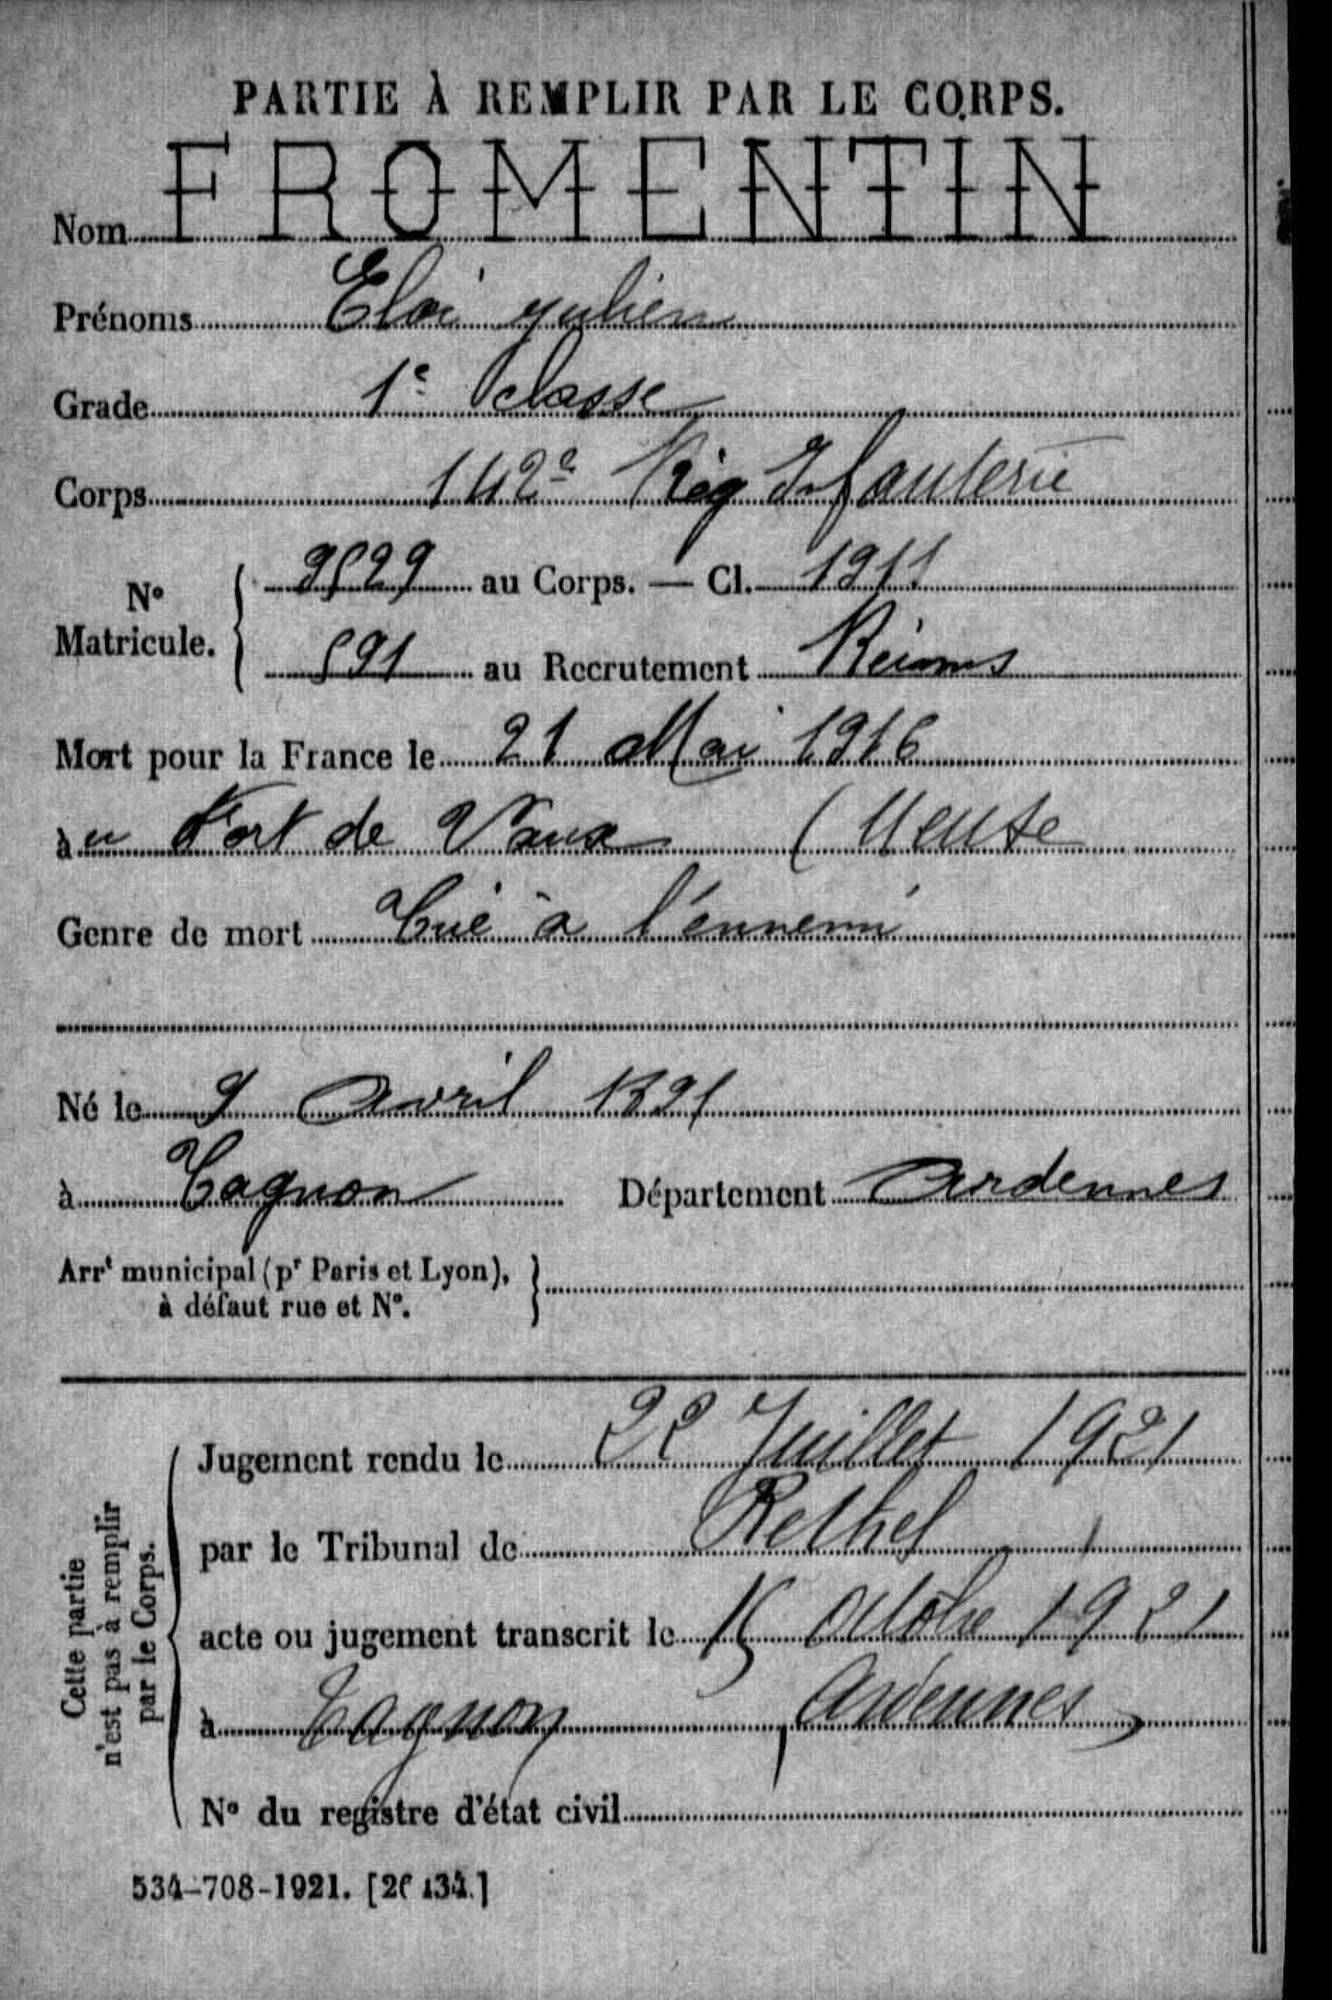 PARTIE À REMPLIR PAR LE CORPS.
Nom FROMENTIN
Prénoms Eloi Julien
Grade 1e classe
Corps 142e Rég Infanterie
No Matricule. 9529 au Corps. — Cl. 1911
591 au Recrutement Reims
Mort pour la France le 21 Mai 1916
àu Fort de Vaux (Meuse
Genre de mort Tué à l'ennemi
Né le 9 Avril 1891
à Tagnon Département Ardennes
Arrt municipal (pr Paris et Lyon),
à défaut rue et No.
Cette partie n'est pas à remplir par le Corps.
Jugement rendu le 22 Juillet 1921
par le Tribunal de Rethel
acte ou jugement transcrit le 15 Octobre 1921
à Tagnon, Ardennes
No du registre d'état civil
534-708-1921.